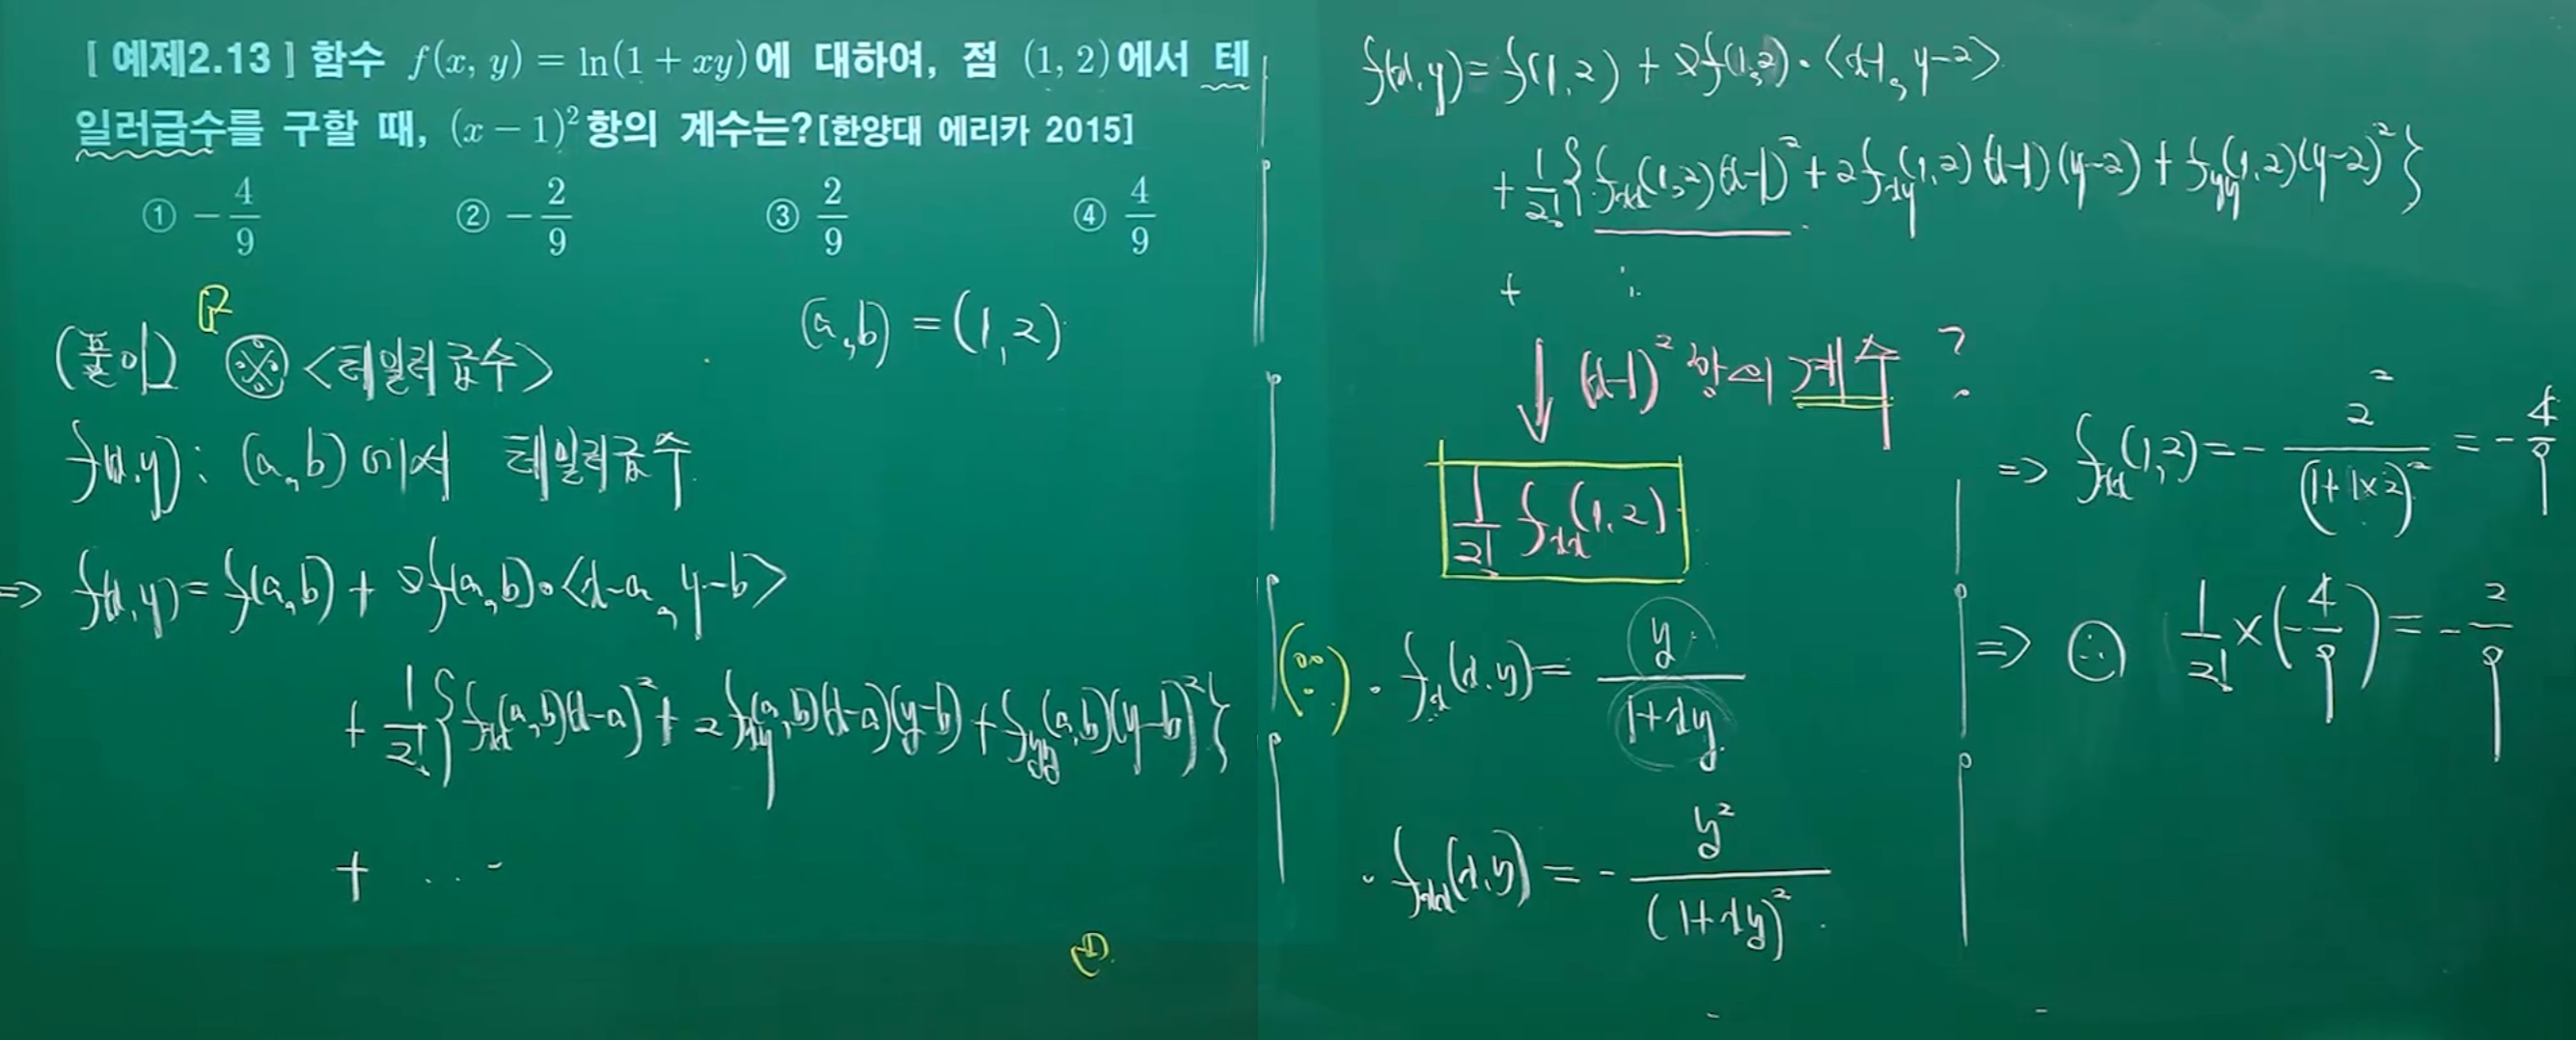 [ 예제2.13 ] 함수 f(x, y) = ln(1 + xy)에 대하여, 점 (1, 2)에서 테
일러급수를 구할 때, (x − 1)²항의 계수는?[한양대 에리카 2015]
① −4/9 ② −2/9 ③ 2/9 ④ 4/9
(풀이) ※ <테일러급수>
(a, b) = (1, 2)
f(x, y) : (a, b)에서 테일러급수
=> f(x, y) = f(a, b) + ∇f(a, b)·<x−a, y−b>
+ 1/2! {f_xx(a, b)(x−a)² + 2f_xy(a, b)(x−a)(y−b) + f_yy(a, b)(y−b)²}
+ ...
f(x, y) = f(1, 2) + ∇f(1, 2)·<x−1, y−2>
+ 1/2! {f_xx(1, 2)(x−1)² + 2f_xy(1, 2)(x−1)(y−2) + f_yy(1, 2)(y−2)²}
+ ⋮
↓ (x−1)² 항의 계수 ?
1/2! f_xx(1, 2)
(∵) · f_x(x, y) = y/(1+xy)
· f_xx(x, y) = − y²/(1+xy)²
=> f_xx(1, 2) = − 2²/(1+1×2)² = −4/9
=> ∴ 1/2! × (−4/9) = −2/9